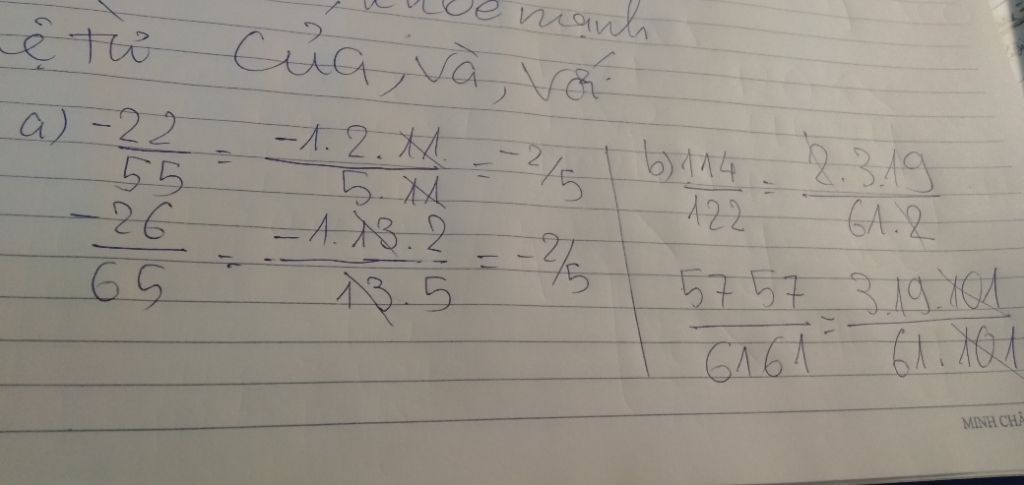 mạnh
ệ từ của, và, với
a) -22/55 = -1.2.11/5.11 = -2/5
-26/65 = -1.13.2/13.5 = -2/5
b) 114/122 = 2.3.19/61.2
5757/6161 = 3.19.101/61.101
MINH CHÂ